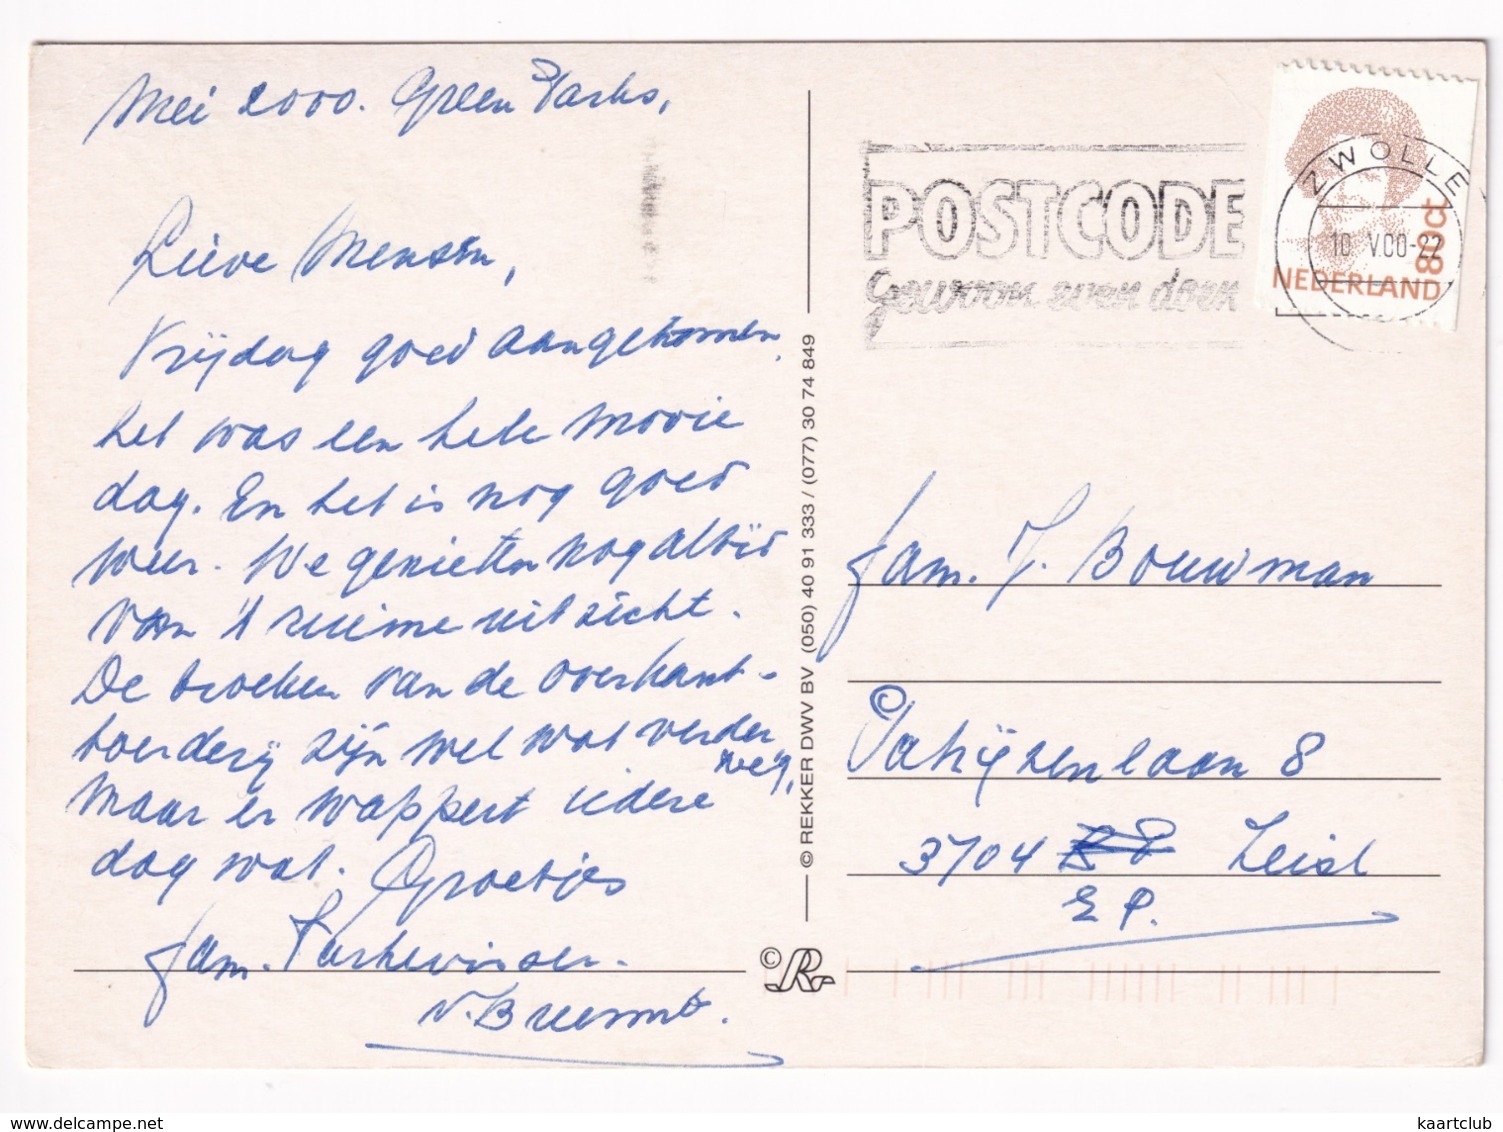 Mei 2000. Green Parks,
Lieve Mensen,
Vrijdag goed aangekomen,
het was een hele mooie
dag. En het is nog goed
weer. We genieten nog altijd
van 't ruime uitzicht.
De broeken van de overkant-
boerderij zijn wel wat verder
weg,
maar er wappert iedere
dag wat. Groetjes
fam.
v.
© REKKER DWV BV (050) 40 91 333 / (077) 30 74 849
© R
POSTCODE
gewoon even doen
ZWOLLE
10 V.00-22
80ct
NEDERLAND
fam. J. Bouwman
Patrijzenlaan 8
3704 Zeist
EP.
www.delcampe.net
kaartclub